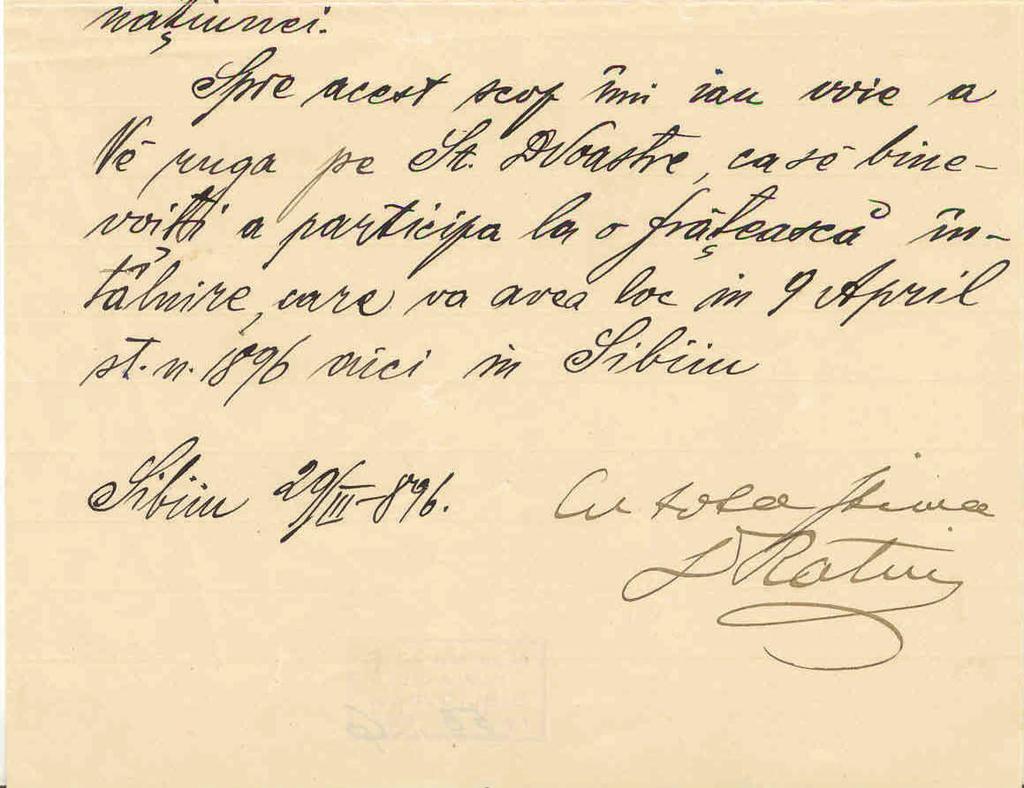 națiunei.
Spre acest scop îmi iau voie a
Vĕ ruga pe St. DVoastre, ca sĕ bine-
voiți a participa la o frățească în-
tâlnire, care va avea loc in 9 April
st. n. 1896 aici in Sibiiu
Sibiiu 29/III-896.
Cu tota stima
Dr Ratiu